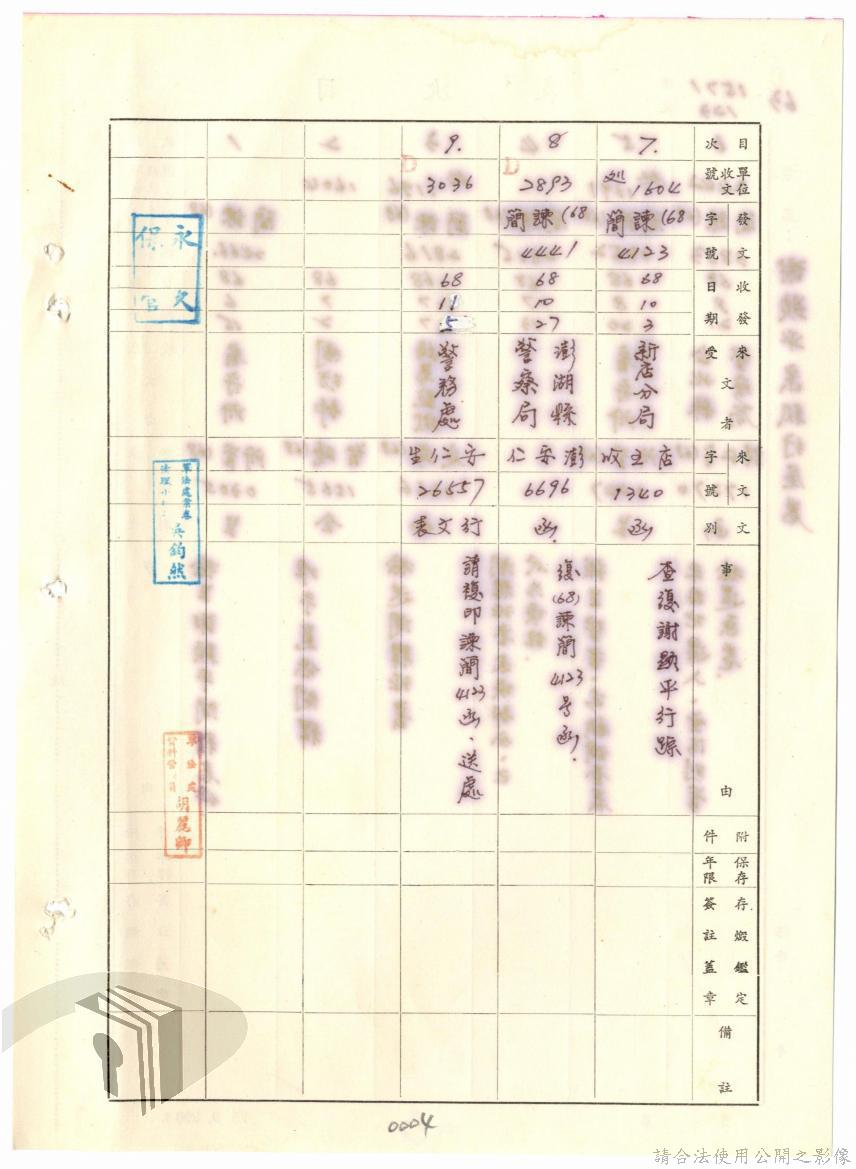 目次
單位收文號
發文字號
收發日期
來受文者
來文字號
文別
事由
附件
保存年限
存燬鑑定簽註蓋章
備註
7.
1604
簡諫(68
4123
68
10
3
新店分局
店主收
1340
函
查復謝平行蹤
8
2893
簡諫(68
4441
68
10
27
澎湖縣警察局
澎安仁
6696
函.
復(68)諫簡4123号函.
9.
3036
68
11
5
警務處
安仁生
26557
行文表
請複印諫簡4123函、送處
永久保管
軍法處案卷
吳鈞然
軍法處
胡麗卿
0004
請合法使用公開之影像